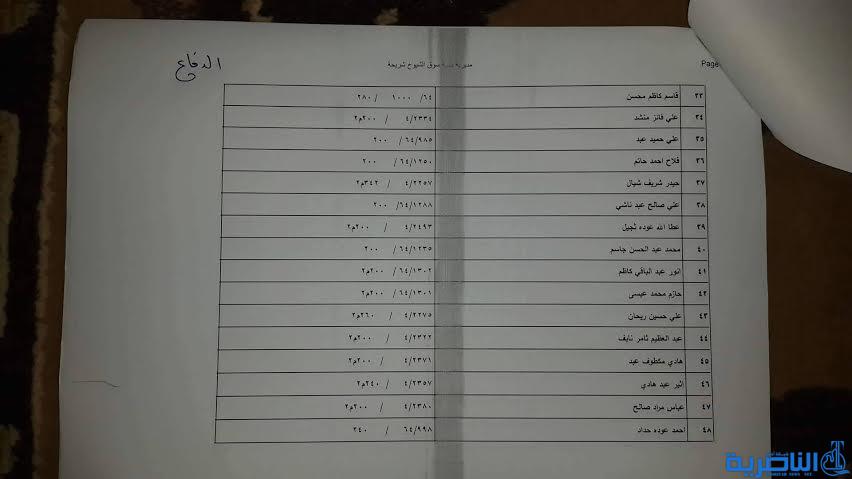 الدفاع
Page
مديرية بلدية سوق الشيوخ شريحة
٣٣ قاسم كاظم محسن ٦٤/ ١٠٠٠ / ٢٨٠
٣٤ علي فائز منشد ٤/٢٣٣٤ / ٢٠٠م٢
٣٥ علي حميد عبد ٦٤/٩٨٥ / ٢٠٠
٣٦ فلاح احمد حاتم ٦٤/١٢٥٠ / ٢٠٠
٣٧ حيدر شريف شيال ٤/٢٢٥٧ / ٣٤٢م٢
٣٨ علي صالح عبد ناشي ٦٤/١٢٨٨ / ٢٠٠
٣٩ عطا الله عوده ثجيل ٤/٢٤٩٣ / ٢٠٠م٢
٤٠ محمد عبد الحسن جاسم ٦٤/١٢٣٥ / ٢٠٠
٤١ انور عبد الباقي كاظم ٦٤/١٣٠٢ / ٢٠٠م٢
٤٢ حازم محمد عيسى ٦٤/١٣٠١ / ٢٠٠م٢
٤٣ علي حسين ريحان ٤/٢٢٧٥ / ٢٦٠م٢
٤٤ عبد العظيم ثامر نايف ٤/٢٣٢٢ / ٢٠٠م٢
٤٥ هادي مكطوف عبد ٤/٢٣٧١ / ٢٠٠م٢
٤٦ اثير عبد هادي ٤/٢٣٥٧ / ٢٤٠م٢
٤٧ عباس مراد صالح ٤/٢٣٨٠ / ٢٠٠م٢
٤٨ احمد عوده حداد ٦٤/٩٩٨ / ٢٤٠
الناصرية